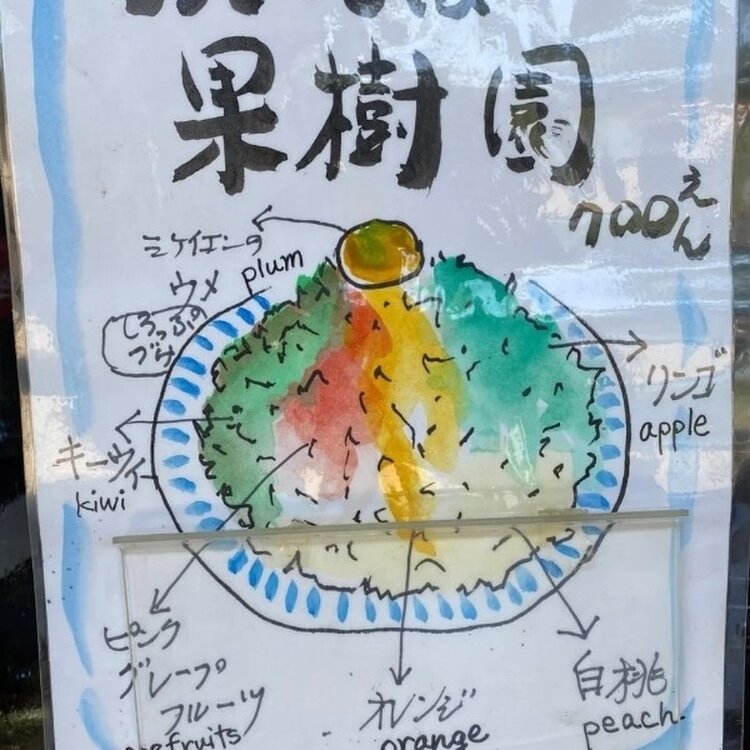 果樹園
700えん
ミケイエンの
ウメ
plum
しろっぷ
づけ
リンゴ
apple
キーウィ
kiwi
ピンク
グレープ
フルーツ
pefruits
オレンジ
orange
白桃
peach.